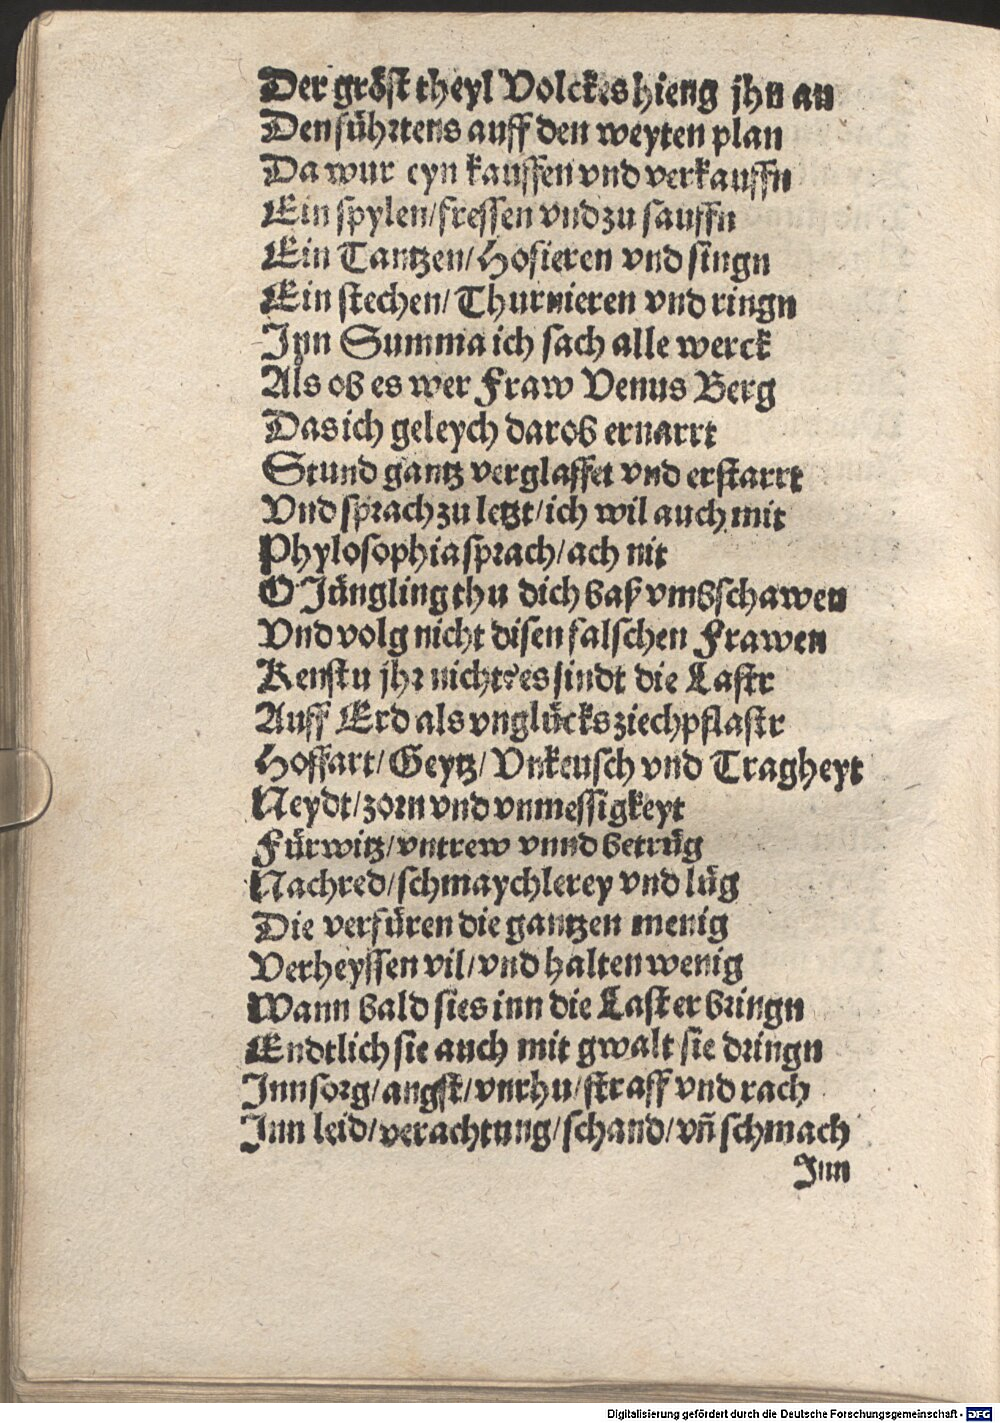 Der gröst theyl Volckes hieng jhn an
Den führtens auff den weyten plan
Da wur eyn kauffen vnd verkauffn
Ein spylen/fressen vnd zu sauffn
Ein Tantzen/Hofieren vnd singn
Ein stechen/Thurnieren vnd ringn
Inn Summa ich sach alle werck
Als ob es wer Fraw Venus Berg
Das ich geleych darob ernarrt
Stund gantz verglaffet vnd erstarrt
Vnd sprach zu letzt/ich wil auch mit
Phylosophia sprach/ach nit
O Jüngling thu dich baß vmbschawen
Vnd volg nicht disen falschen Frawen
Kenstu jhr nicht? es sindt die Lastr
Auff Erd als vnglücks ziechpflastr
Hoffart/Geytz/Vnkeusch vnd Tragheyt
Neydt/zorn vnd vnmessigkeyt
Fürwitz/vntrew vnnd betrüg
Nachred/schmaychlerey vnd lüg
Die verfüren die gantzen menig
Verheyssen vil/vnd halten wenig
Wann bald sies inn die Laster bringn
Endtlich sie auch mit gwalt sie dringn
Inn sorg/angst/vnrhu/straff vnd rach
Inn leid/verachtung/schand/vñ schmach
Inn
Digitalisierung gefördert durch die Deutsche Forschungsgemeinschaft - DFG